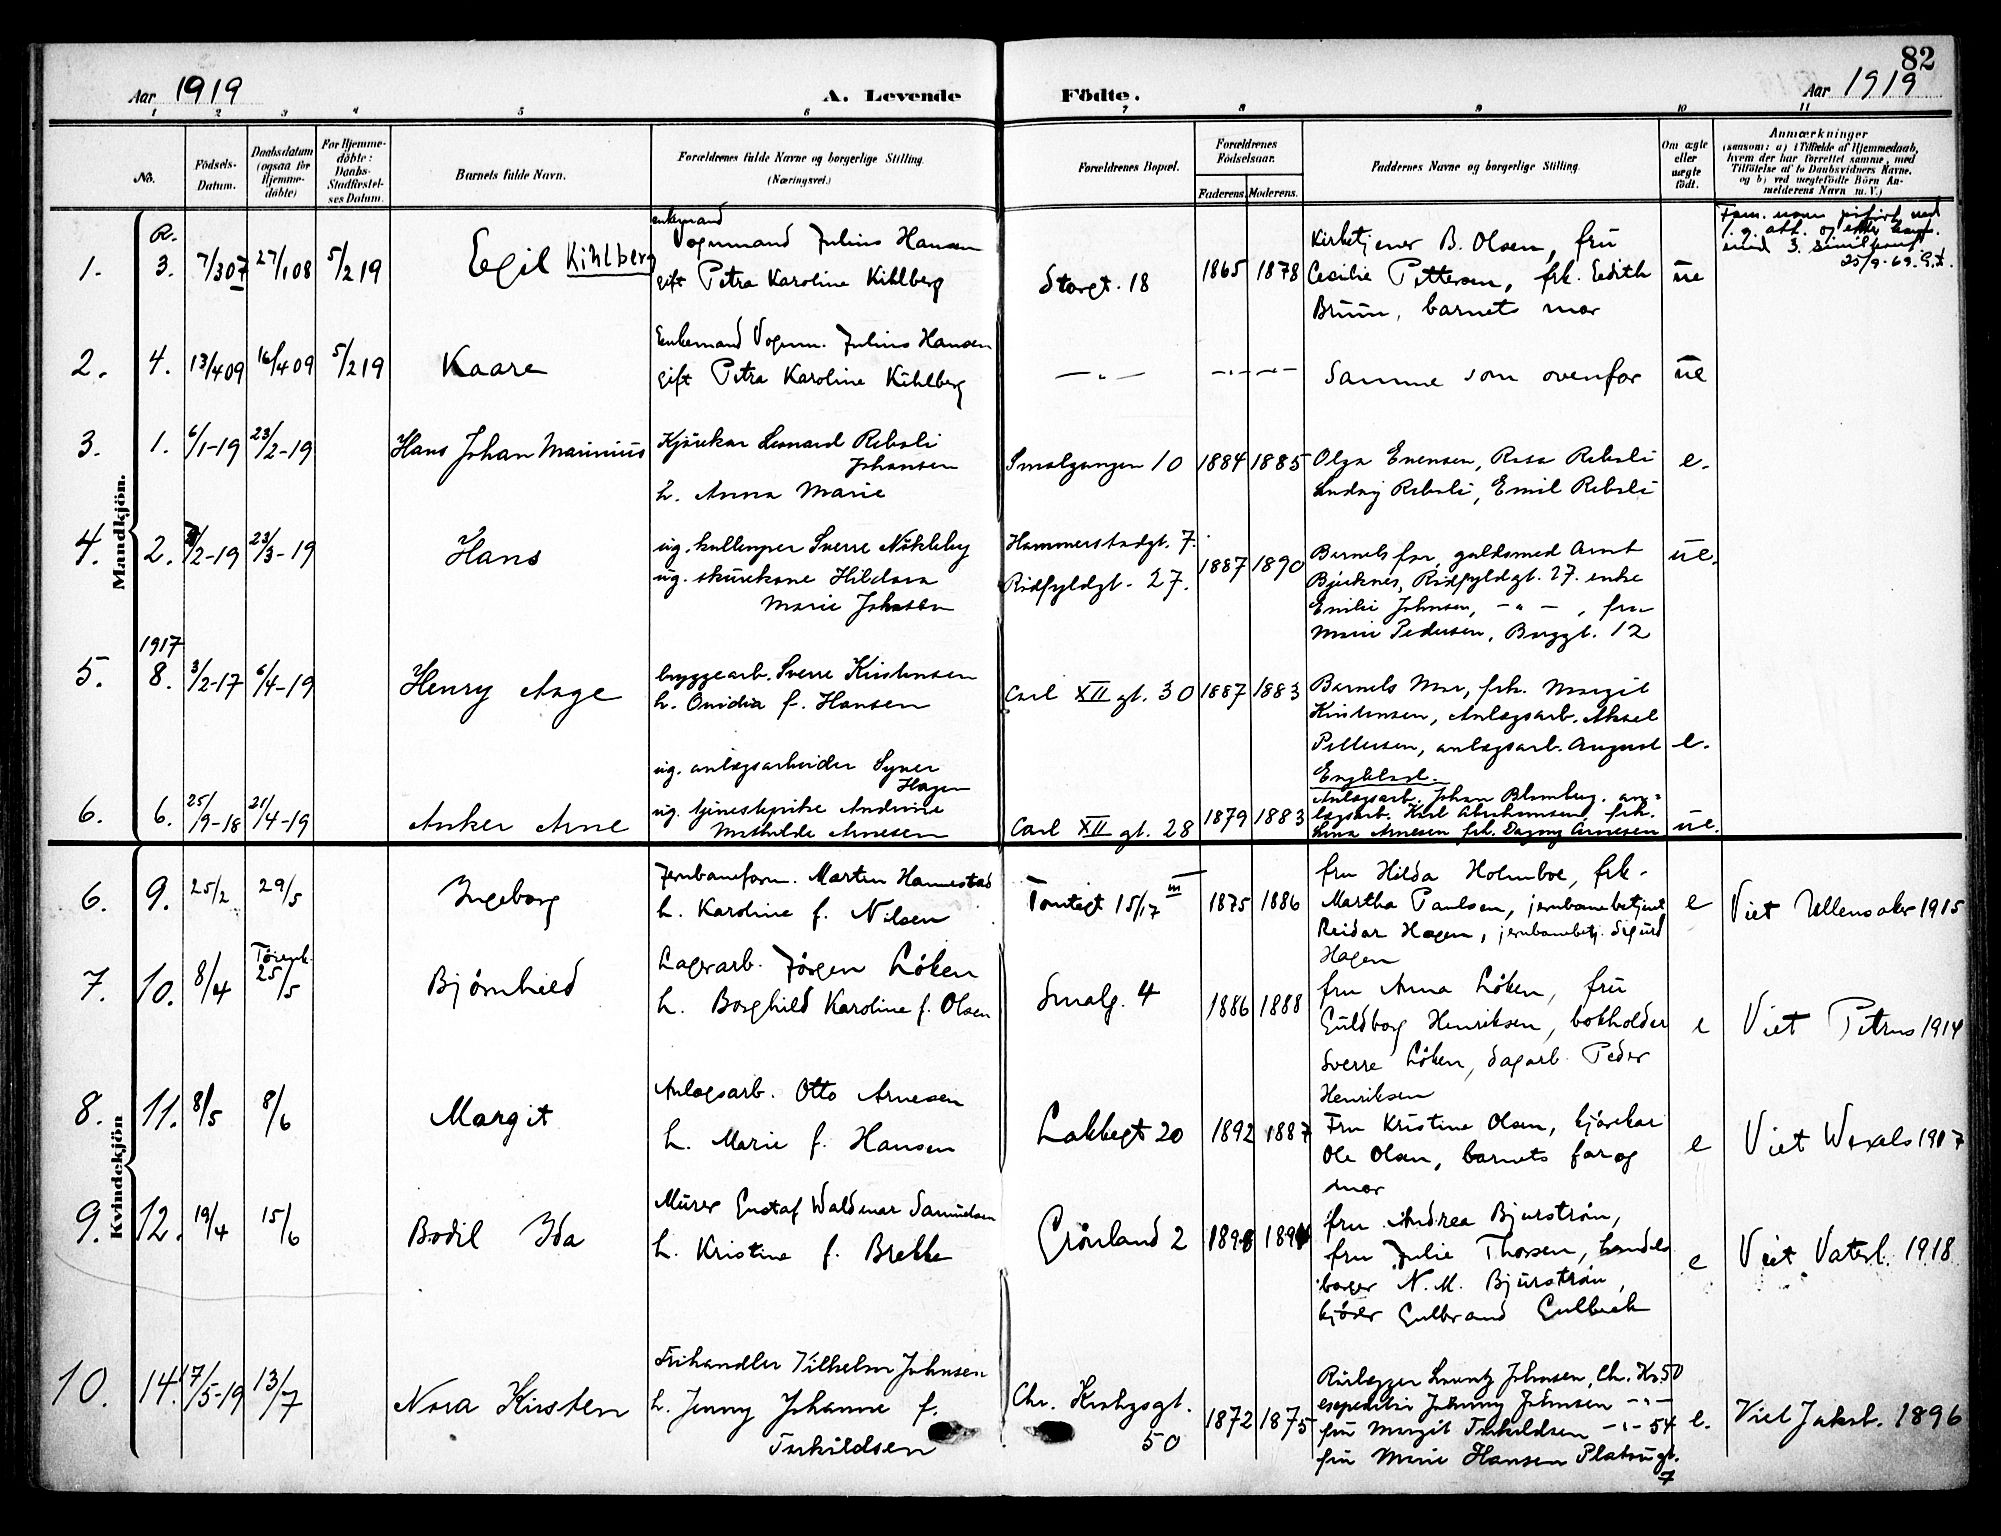 82
Aar 1919
A. Levende Födte.
Aar 1919
1 2 3 4 5 6 7 8 9 10 11
No.
Födsels-Datum.
Daabsdatum (ogsaa for Hjemme-döbte)
For Hjemme-döbte: Daabs-Stadfæstel-ses Datum.
Barnets fulde Navn.
Forældrenes fulde Navne og borgerlige Stilling.
(Næringsvei.)
Forældrenes Bopæl.
Forældrenes Födselsaar.
Faderens. Moderens.
Faddernes Navne og borgerlige Stilling.
Om ægte eller uægte födt.
Anmærkninger
(saasom: a) i Tilfælde af Hjemmedaab,
hvem der har forrettet samme, med
Tilföielse af to Daabsvidners Navne.
og b) ved uægtefödte Börn An-
melderens Navn m. V.)
Mandkjön.
R.
1. 3. 7/3 07 27/1 08 5/2 19
Egil Kihlberg
enkemand
Vognmand Julius Hansen
gift Petra Karoline Kihlberg
Storgt. 18
1865 1878
Kirketjener B. Olsen, fru
Cecilie Pettersen, frk. Edith
Bruun, barnets mor
ue
Fam. navn påført ved
25/9-69.
2. 4. 13/4 09 16/4 09 5/2 19
Kaare
Enkemand Vognm. Julius Hansen
gift Petra Karoline Kihlberg
— „ —
— „ — — „ —
Samme som ovenfor
ue
3. 1. 6/1-19 23/2-19
Hans Johan Marinius
Kjørekar Leonard Rebeli
Johansen
h. Anna Marie
Smalgangen 10
1884 1885
Olga Evensen, Rosa Rebeli
Ludvig Rebeli, Emil Rebeli
e.
4. 2. /2-19 23/3-19
Hans
ug. kullemper Sverre Nökleby
ug. skurekone Hildora
Marie Johnsen
Hammerstadgt. 7.
Rödfyldgt. 27.
1887 1890
Barnets far, guldsmed Arnt
Bjerknes, Rödfyldgt. 27. enke
Emilie Johnsen, — „ —, fru
Marie Pedersen, Borggt. 12
ue.
1917
5. 8. 3/2-17 6/4-19
Henry Aage
bryggearb. Sverre Kristensen
h. Ovidia f. Hansen
Carl XII gt. 30
1887 1883
Barnets Mor, frk. Margit
Kristensen, Anlægsarb. Aksel
Pettersen, anlægsarb. August
Engblad.
e.
6. 6. 25/9-18 21/4-19
Anker Arne
ug. anlægsarbeider Syver
Hagen
ug. tjenestepike Andrine
Mathilde Arnesen
Carl XII gt. 28
1879 1883
Anlægsarb. Johan Blomberg, an-
lægsarb. Karl Abrahamsen, frk.
Lina Arnesen frk. Dagny Arnesen
ue.
Kvindekjön
6. 9. 25/2 29/5
Ingeborg
Jernbaneform. Martin Hannestad
h. Karoline f. Nilsen
Tomtegt 15/17 III
1875 1886
fru Hilda Holmboe, frk.
Martha Paulsen, jernbanebetjent
Reidar Hagen, jernbanebetj. Sigurd
Hagen
e
Viet Ullensaker 1915
7. 10. 8/4 25/5
Bjørnhild
Lagerarb. Jörgen Löken
h. Borghild Karoline f. Olsen
Smalg. 4
1886 1888
fru Anna Löken, fru
Guldborg Henriksen, bokholder
Sverre Löken, dagarb. Peder
Henriksen
e
Viet Petrus 1914
8. 11. 8/5 8/6
Margit
Anlægsarb. Otto Arnesen
h. Marie f. Hansen
Lakkegt 20
1892 1887
Fru Kristine Olsen, kjörekar
Ole Olsen, barnets far og
mor
e
Viet Wexels 1917
9. 12. 19/4 15/6
Bodil Ida
Murer Gustaf Waldemar Samuelsen
h. Kristine f. Brekke
Grönland 2
fru Andrea Bjurström,
fru Julie Thorsen, handels
borger N. M. Bjurström,
kjörer Gulbrand Gulbæk
e
Viet Vaterl. 1918
10. 14. 17/5-19 13/7
Nora Kirsten
Frihandler Vilhelm Johnsen
h. Jenny Johanne f.
Torkildsen
Chr. Krohgsgt.
50
1872 1875
Rörlægger Lorentz Johnsen, Ch. Kr. 50
Johnsen — „ —
fru Margit Torkildsen — „ — 54
fru Marie Hansen Platougt.
7
e.
Viet Jakob. 1896